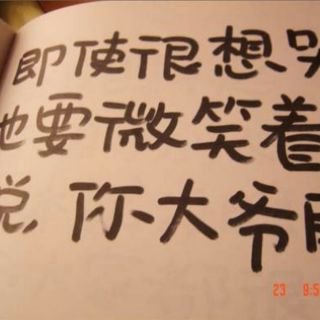 即使很想哭
也要微笑着
说,你大爷的
23 9:5